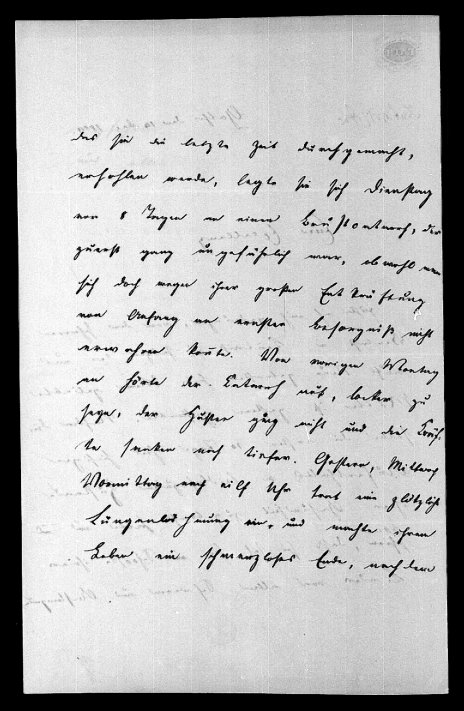 das sie die letzte Zeit durchgemacht,
erholen werde, legte sie sich Dienstag
vor 8 Tagen an einem Brustkatarrh, der
zuerst ganz ungefährlich war, obwohl man
sich doch wegen ihrer großen Entkräftung
von Anfang an ernster Besorgniß nicht
erwehren konnte. Von vorigem Montag
an hörte der Katarrh auf, locker zu
seyn, der Husten ging nicht und die Kräf-
te sanken noch tiefer. Gestern, Mittwoch
Vormittag nach eilf Uhr trat eine plötzliche
Lungenlähmung ein, und machte ihrem
Leben ein schmerzloses Ende, nachdem